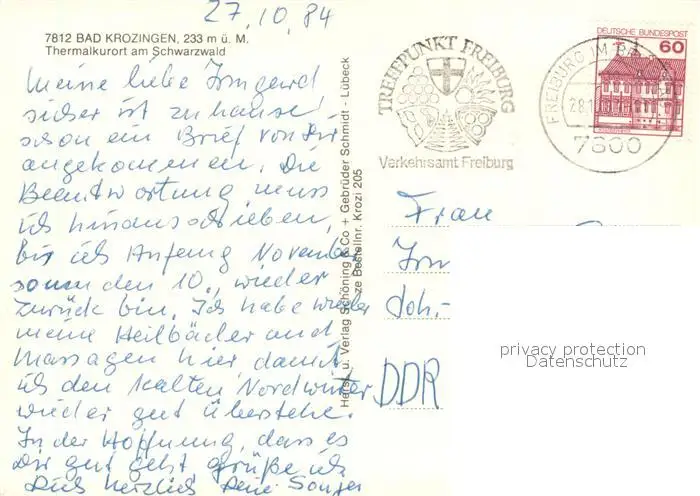 27.10.84
7812 BAD KROZINGEN, 233 m ü. M.
Thermalkurort am Schwarzwald
Meine liebe Irmgard
sicher ist zuhause
schon ein Brief von Dir
angekommen. Die
Beantwortung muss
ich hinausschieben,
bis ich Anfang November
so um den 10. wieder
zurück bin. Ich habe wieder
meine Heilbäder und
Massagen hier, damit
ich den kalten Nordwinter
wieder gut überstehe.
In der Hoffnung, dass es
Dir gut geht grüße ich
Dich herzlich Deine
Herst. u. Verlag Schöning & Co + Gebrüder Schmidt - Lübeck
Bestellnr. Krozi 205
TREFFPUNKT FREIBURG
Verkehrsamt Freiburg
FREIBURG IM
28.1
7800
DEUTSCHE BUNDESPOST
60
Frau
Irm
Joh.-
DDR
privacy protection
Datenschutz